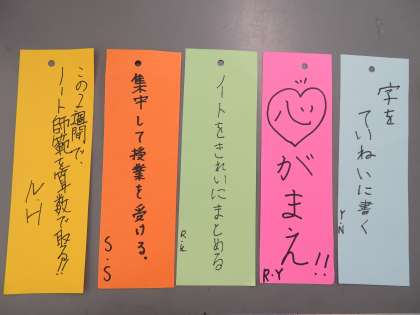 この2週間で、
ノート師範を数で取る!!
N.H
集中して授業を受ける.
S.S
ノートをきれいにまとめる
R.K
心がまえ!!
R.Y
字を
ていねいに書く
Y.N